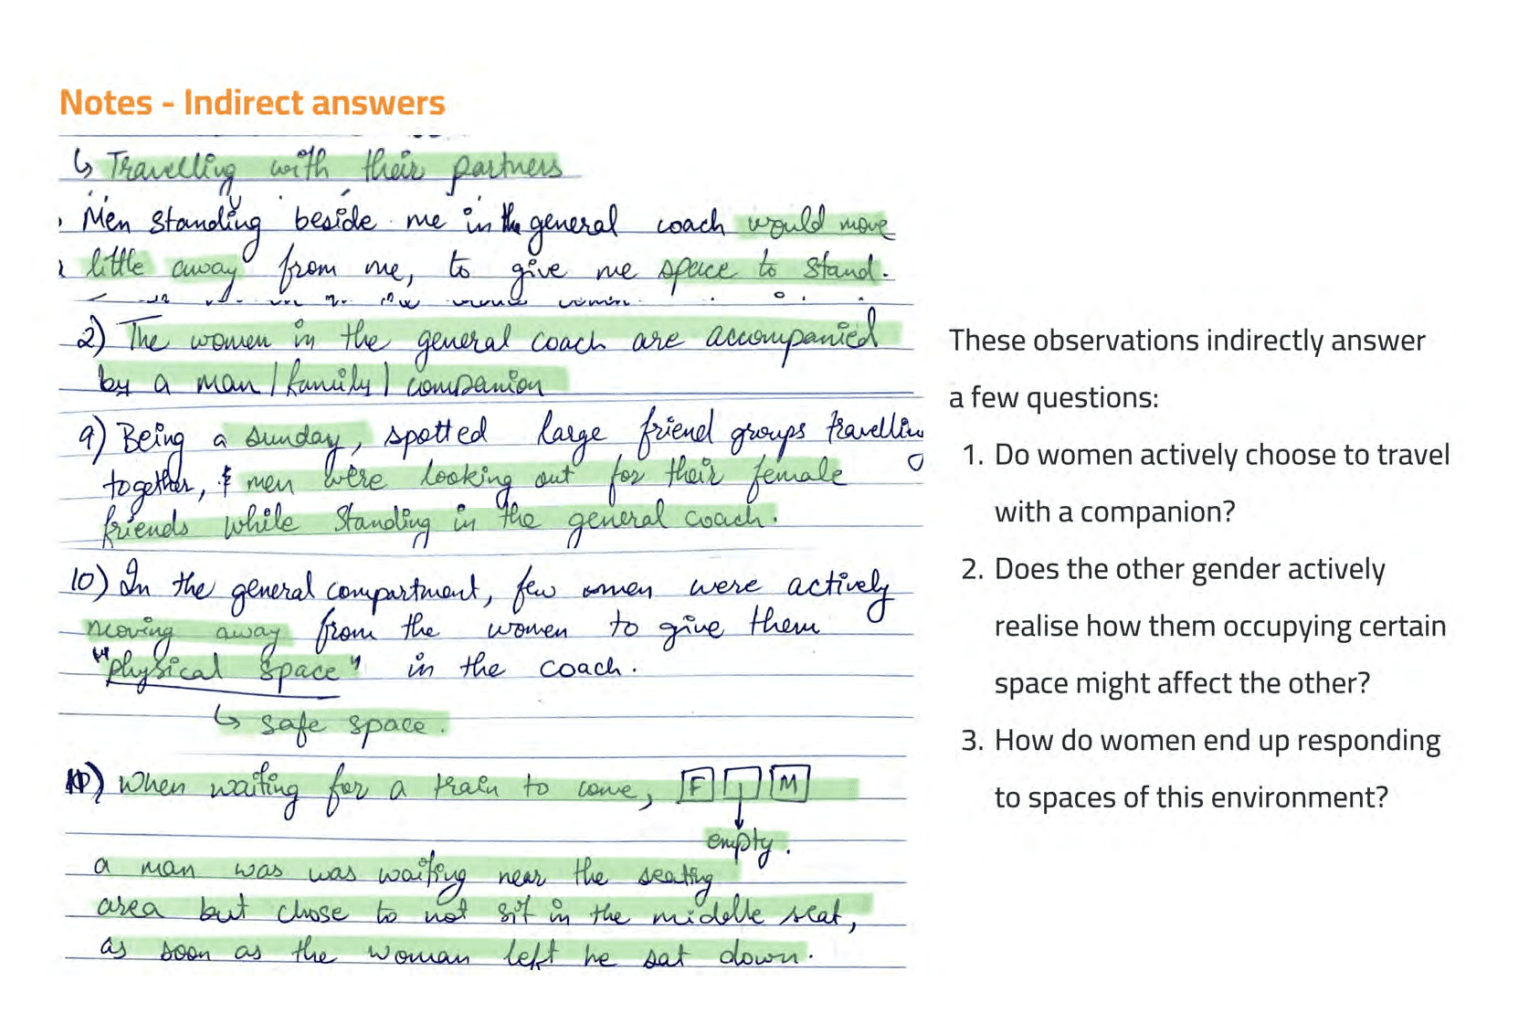 Notes - Indirect answers
↳ Travelling with their partners
Men standing beside me in the general coach would move
little away from me, to give me space to stand.
2) The women in the general coach are accompanied
by a man / family / companion
9) Being a sunday, spotted large friend groups travelling
together, & men were looking out for their female
friends while standing in the general coach.
10) In the general compartment, few omen were actively
moving away from the women to give them
"physical space" in the coach.
↳ safe space.
When waiting for a train to come, F M
empty.
a man was was waiting near the seating
area but chose to not sit in the middle seat,
as soon as the woman left he sat down.
These observations indirectly answer
a few questions:
1. Do women actively choose to travel
with a companion?
2. Does the other gender actively
realise how them occupying certain
space might affect the other?
3. How do women end up responding
to spaces of this environment?